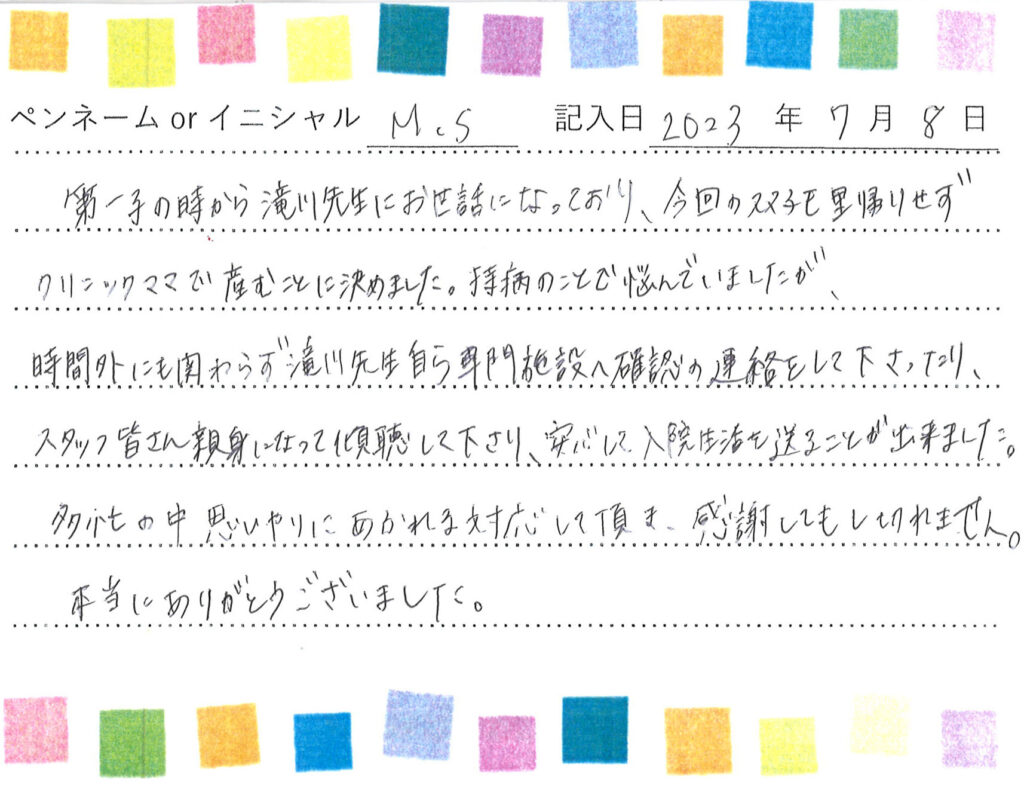 ペンネーム or イニシャル M.S 記入日 2023 年 7 月 8 日
第一子の時から滝川先生にお世話になっており、今回のスマ子も里帰りせず
クリニックママで産むことに決めました。持病のことで悩んでいましたが、
時間外にも関わらず滝川先生自ら専門施設へ確認の連絡をして下さったり、
スタッフ皆さん親身になって傾聴して下さり、安心して入院生活を送ることが出来ました。
多忙の中思いやりにあふれる対応して頂き、感謝してもし切れません。
本当にありがとうございました。